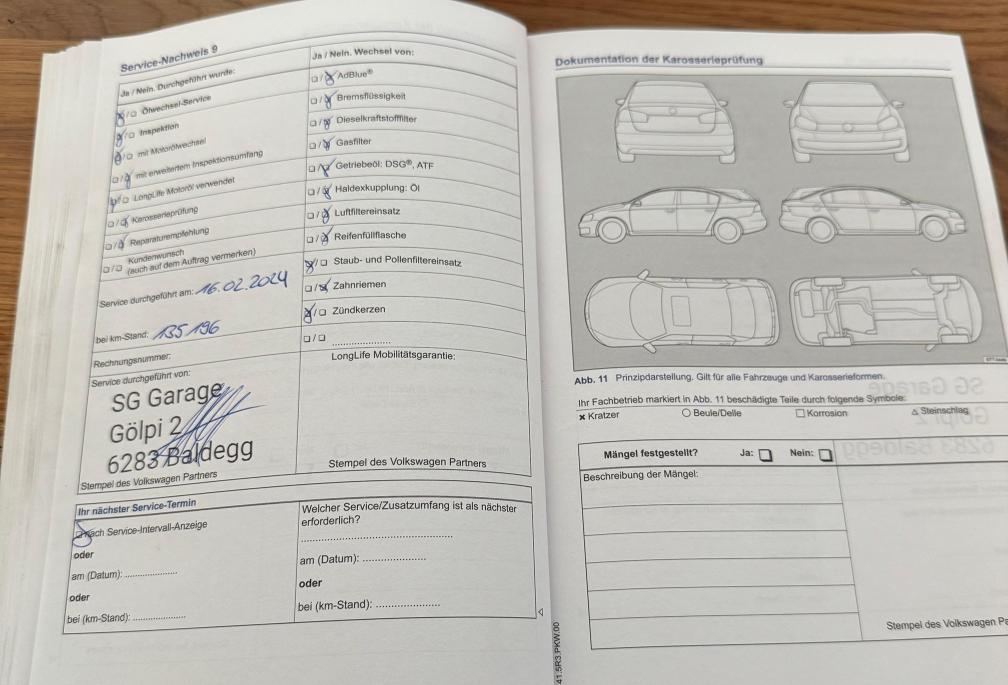 Service-Nachweis 9
Ja / Nein. Durchgeführt wurde:
☒/☐ Ölwechsel-Service
☒/☐ Inspektion
☒/☐ mit Motorölwechsel
☐/☒ mit erweitertem Inspektionsumfang
☒/☐ LongLife Motoröl verwendet
☐/☒ Karosserieprüfung
☐/☒ Reparaturempfehlung
☐/☐ Kundenwunsch
(auch auf dem Auftrag vermerken)
Service durchgeführt am: 16.02.2024
bei km-Stand: 135 196
Rechnungsnummer:
Service durchgeführt von:
SG Garage
Gölpi 2
6283 Baldegg
Stempel des Volkswagen Partners
Ja / Nein. Wechsel von:
☐/☒ AdBlue®
☐/☒ Bremsflüssigkeit
☐/☒ Dieselkraftstofffilter
☐/☒ Gasfilter
☐/☒ Getriebeöl: DSG®, ATF
☐/☒ Haldexkupplung: Öl
☐/☒ Luftfiltereinsatz
☐/☒ Reifenfüllflasche
☒/☐ Staub- und Pollenfiltereinsatz
☐/☒ Zahnriemen
☒/☐ Zündkerzen
☐/☐ ......................
LongLife Mobilitätsgarantie:
Stempel des Volkswagen Partners
Ihr nächster Service-Termin
☒ nach Service-Intervall-Anzeige
oder
am (Datum): ..................
oder
bei (km-Stand): ..................
Welcher Service/Zusatzumfang ist als nächster
erforderlich?
..........................................
am (Datum): ..................
oder
bei (km-Stand): ..................
Dokumentation der Karosserieprüfung
Abb. 11 Prinzipdarstellung. Gilt für alle Fahrzeuge und Karosserieformen.
Ihr Fachbetrieb markiert in Abb. 11 beschädigte Teile durch folgende Symbole:
✖ Kratzer ○ Beule/Delle □ Korrosion △ Steinschlag
Mängel festgestellt? Ja: ❑ Nein: ❑
Beschreibung der Mängel:
Stempel des Volkswagen Pa
41.5R3.PKW.00